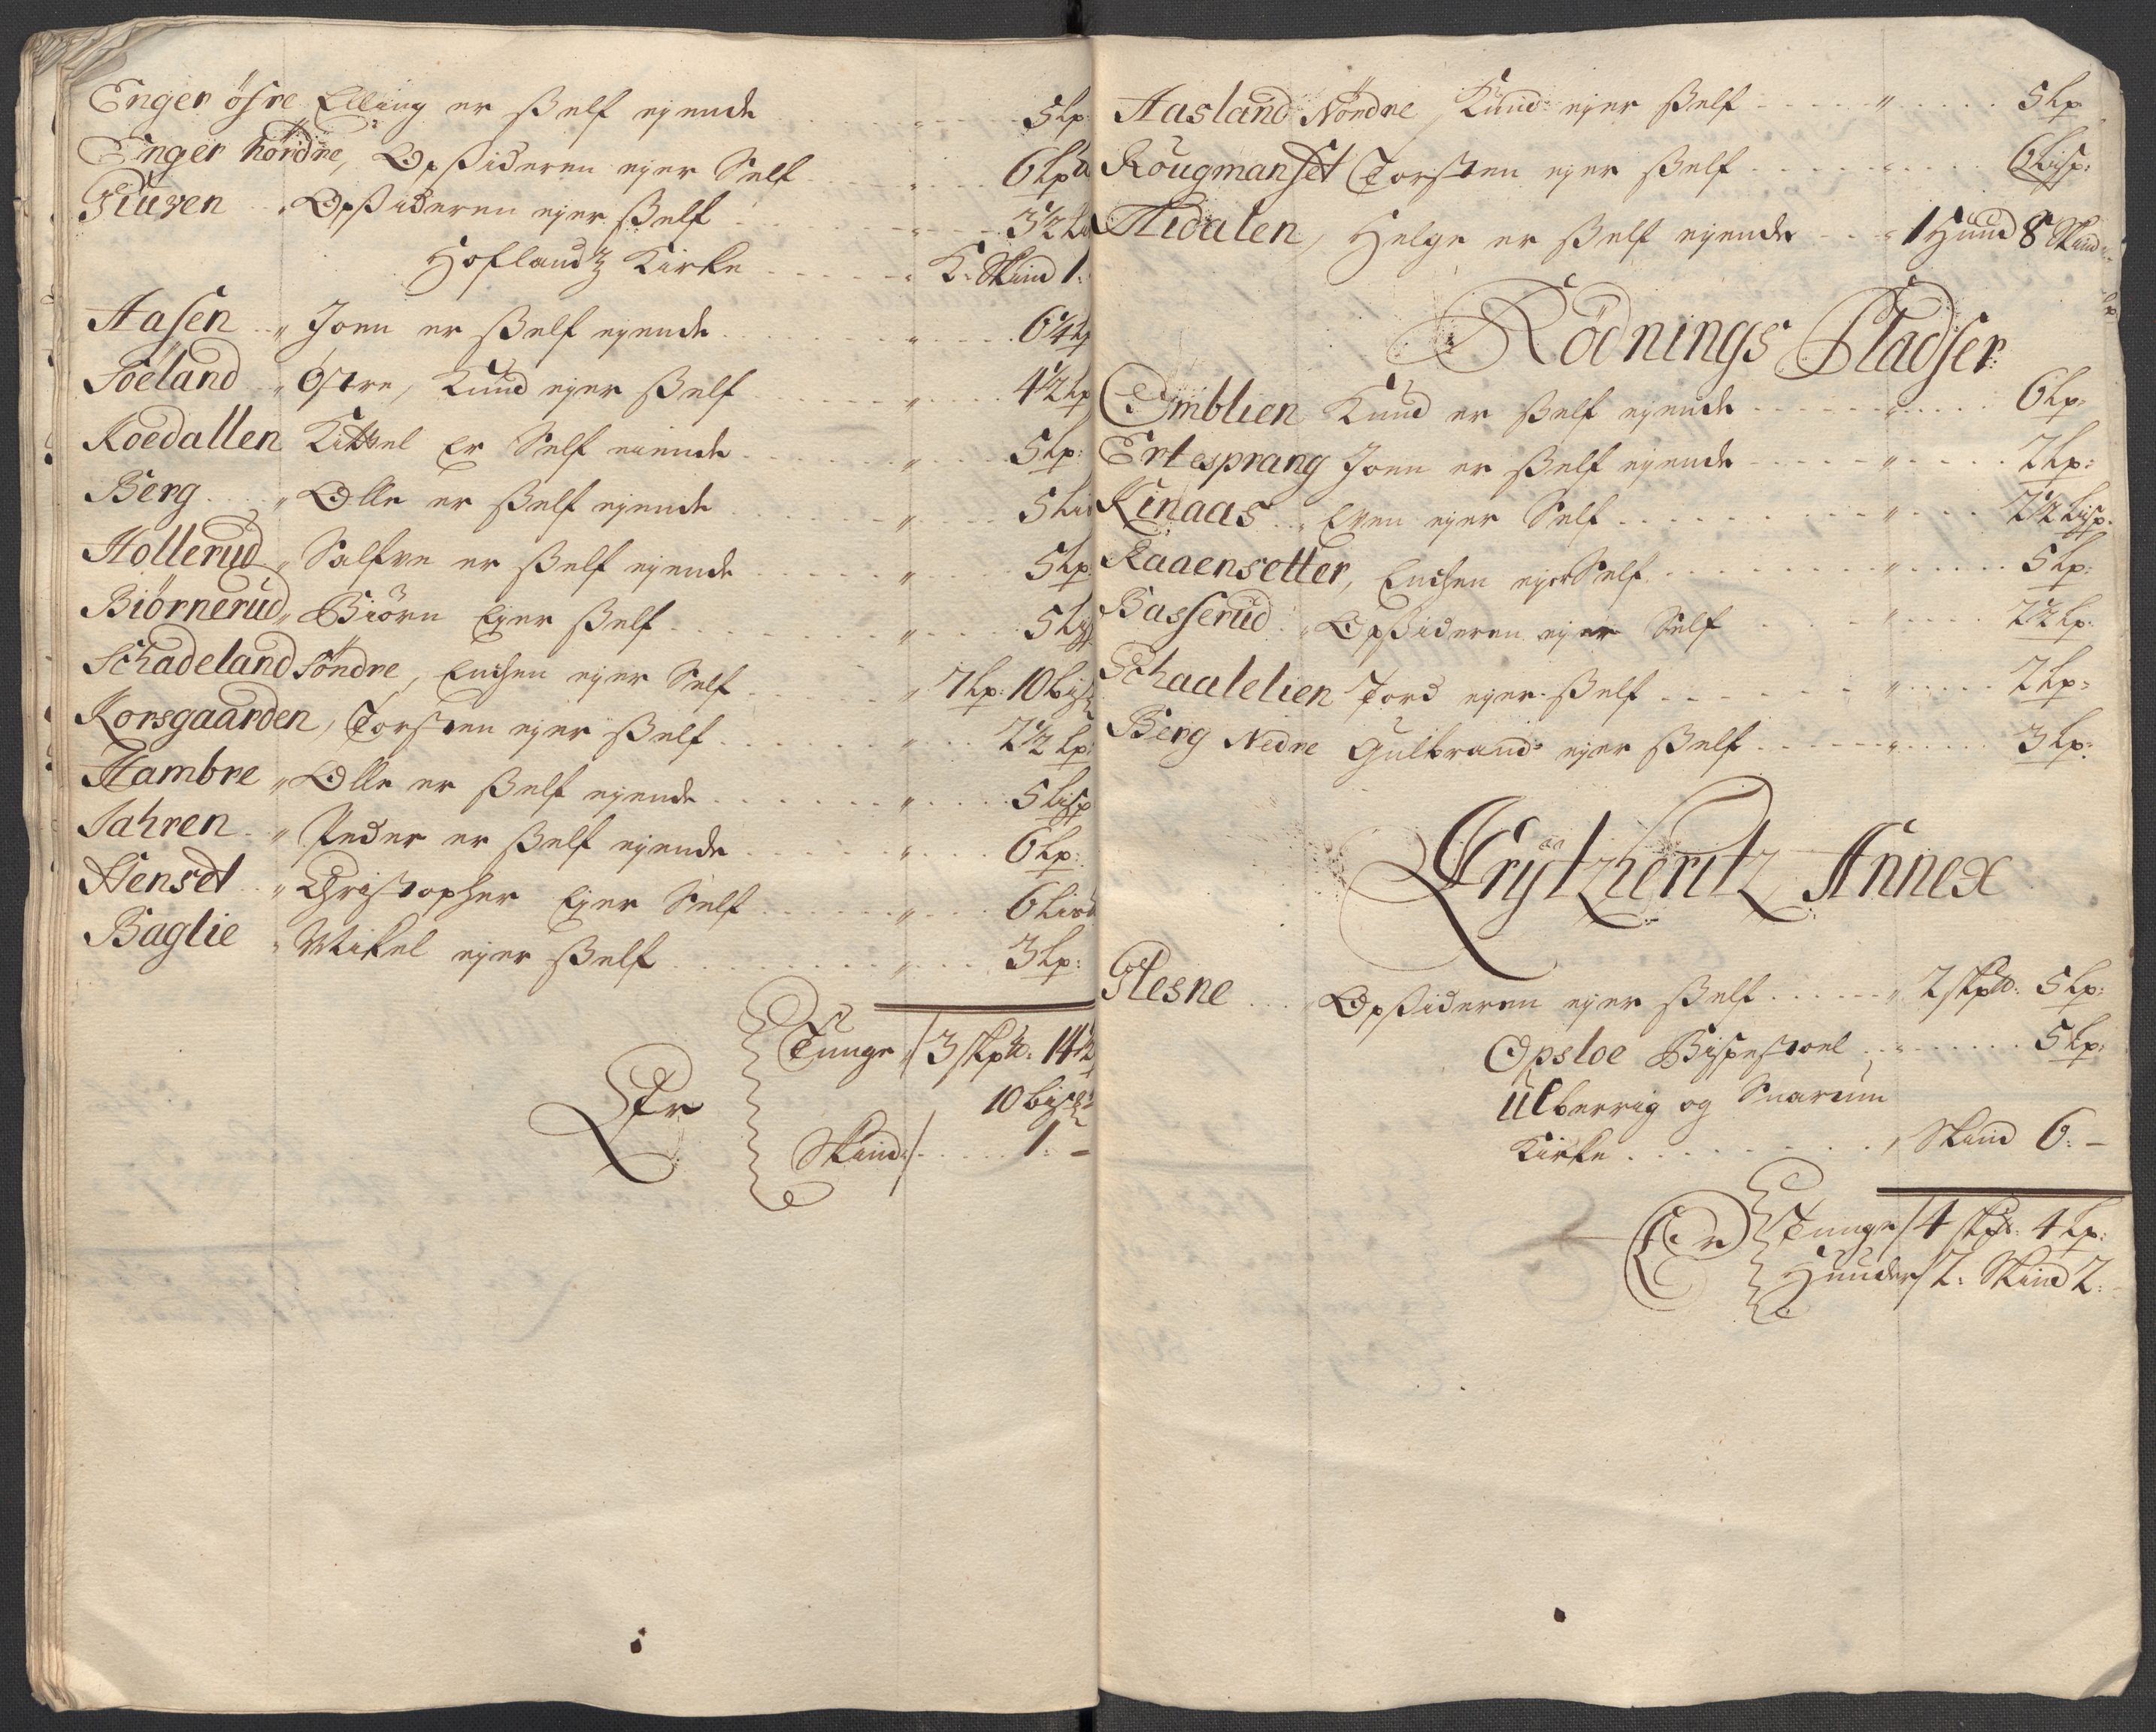 Enger öfre Elling er Sself ejende . . . 5 Lp:
Enger nordre, Opsideren ejer Self . . . 6 Lp
Opsideren ejer Sself . . . 3½
Hoflandtz Kirke . . . K: Skind 1:
Aasen " Joen er Sself ejende . . . 6¼ Lp
Söeland " Östre, Knud ejer Sself . . . 4½ Lp
Roedallen Kittel Er Self eiende . . . 5 Lp:
Berg " Olle er Sself ejende . . . 5
Hollerud " Salfve er Sself ejende . . . 5 Lp:
Biörnerud " Biörn Ejer Sself . . . 5
Schadeland Söndre, Endsen ejer Self . . . " 7 Lp: 10 bisp
Korsgaarden, Torsten ejer Sself . . . 2½ Lp:
Hambre " Olle er Sself ejende . . . 5 bisp
Jahren " Peder er Sself ejende . . . 6 Lp:
Stenset " Christopher Ejer Self . . . 6
Baglie " Mikel ejer Sself . . . 3 Lp:
Er Tunge / 3 skp℔: 14
10 bisp
Skind / . . . 1: –
Aasland Nordre, Knud ejer Sself . . . 5 Lp
Rougmanset Torsten ejer Sself . . . 6 bisp:
Aidalen, Helge er Sself ejende . . . 1 Huud 8 Skind
Rödnings Pladser
Emblien Knud er Sself ejende . . . 6 Lp:
Ertesprang Joen er Sself ejende . . . 2 Lp:
Kinaas . . Even ejer Self . . . 2½ bisp:
Raaensetter, Endsen ejer Self . . . 5 Lp:
Basserud " Opsideren ejer Self . . . 2½ Lp:
Schaalelien Tord ejer Sself . . . 2 Lp:
Berg Nedre Gulbrand ejer Sself . . . 3 Lp:
Krÿtzheritz Annex
Glesne . . . Opsideren ejer Sself . . . " 2 skp℔: 5 Lp:
Opsloe Bispestoel . . . 5 Lp:
Ulberrig og Snarum
Kirke . . . Skind 6: –
Er Tunge / 4 skp℔: 4 Lp:
Huuder / 2: Skind 2: